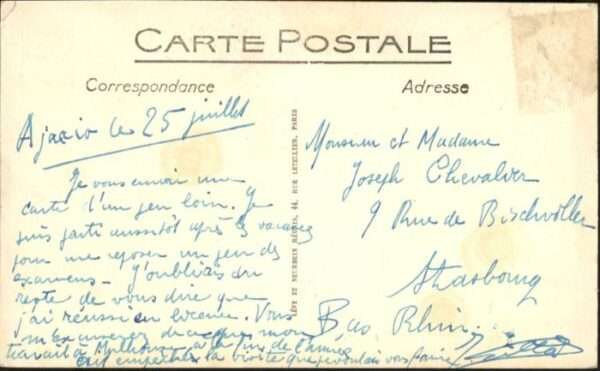 CARTE POSTALE
Correspondance
Adresse
Ajaccio le 25 juillet
Je vous envoie une
carte d'un peu loin. Je
suis parti aussitôt après les vacances
pour me reposer un peu des
examens - J'oubliais du
reste de vous dire que
j'ai réussi en licence. Vous
m'excuserez du que mon
travail à Mulhouse à la fin de l'année
ait empêché la visite que je voulais vous faire
LÉVY ET NEURDEIN RÉUNIS, 44, RUE LETELLIER, PARIS
Monsieur et Madame
Joseph Chevalier
9 Rue de Bischwiller
Strasbourg
Bas Rhin